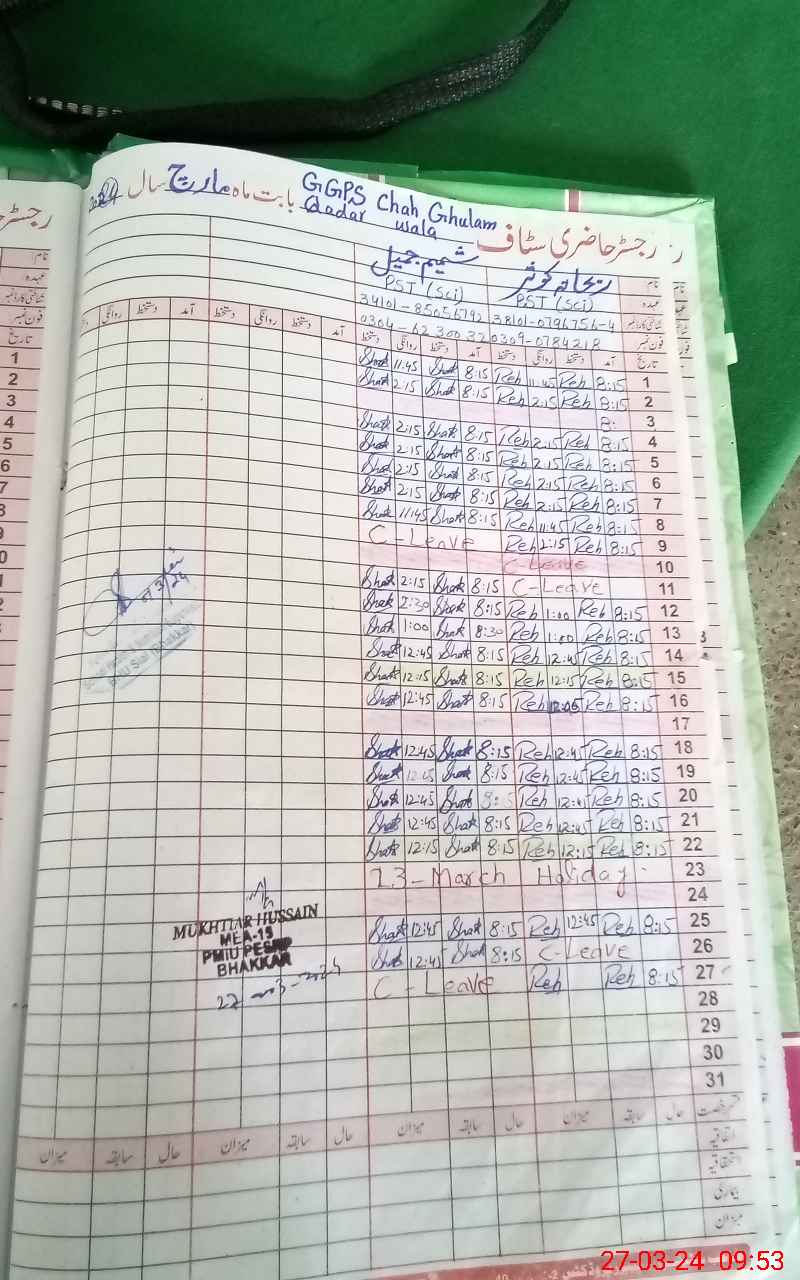 رجسٹر حاضری سٹاف GGPS Chah Ghulam Qadar wala بابت ماہ مارچ سال
نام ریحانہ کوثر شمیم جمیل
عہدہ PST (Sci) PST (Sci)
فون نمبر 0309-0784218
تاریخ آمد دستخط روانگی دستخط آمد دستخط روانگی دستخط آمد دستخط روانگی دستخط آمد دستخط روانگی
1 8:15 Reh 11:45 Reh 8:15 Shak 11:45 Shak
2 8:15 Reh 2:15 Reh 8:15 Shak 2:15 Shak
3 8:
4 8:15 Reh 2:15 Reh 8:15 Shak 2:15 Shak
5 8:15 Reh 2:15 Reh 8:15 Shak 2:15 Shak
6 8:15 Reh 2:15 Reh 8:15 Shak 2:15 Shak
7 8:15 Reh 2:15 Reh 8:15 Shak 2:15 Shak
8 8:15 Reh 11:45 Reh 8:15 Shak 11:45 Shak
9 8:15 Reh 2:15 Reh C-Leave
10 C-Leave
11 C-Leave 8:15 Shak 2:15 Shak
12 8:15 Reh 1:00 Reh 8:15 Shak 2:30 Shak
13 8:15 Reh 1:00 Reh 8:30 Shak 1:00 Shak
14 8:15 Reh 12:45 Reh 8:15 Shak 12:45 Shak
15 8:15 Reh 12:15 Reh 8:15 Shak 12:15 Shak
16 8:15 Reh Reh 8:15 Shak 12:45 Shak
17
18 8:15 Reh 12:45 Reh 8:15 Shak 12:45 Shak
19 8:15 Reh 12:45 Reh 8:15 Shak Shak
20 8:15 Reh 12:45 Reh Shak 12:45 Shak
21 8:15 Reh 12:45 Reh 8:15 Shak 12:45 Shak
22 8:15 Reh 12:15 Reh 8:15 Shak 12:15 Shak
23 23-March Holiday
24
25 8:15 Reh 12:45 Reh 8:15 Shak 12:45 Shak
26 C-Leave 8:15 Shak 12:45 Shak
27 8:15 Reh Reh C-Leave
28
29
30
31
MUKHTIAR HUSSAIN
MEA-15
PMIU PESRP
BHAKKAR
27-03-2024
حال سابقہ میزان حال سابقہ میزان حال سابقہ میزان حال سابقہ میزان
اتفاقیہ
استحقاقیہ
بیماری
میزان
27-03-24 09:53